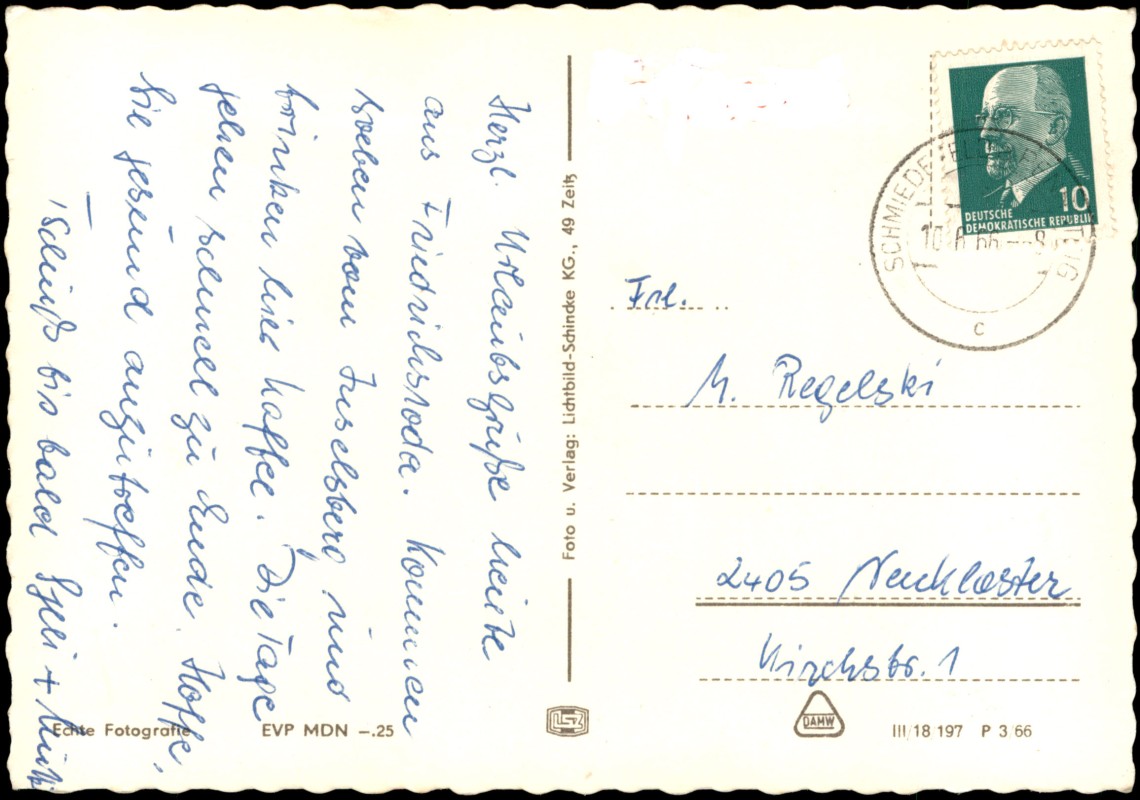 Herzl. Urlaubsgrüße heute
aus Friedrichsroda. Kommen
soeben vom Inselsberg und
trinken hier Kaffee. Die Tage
gehen schnell zu Ende. Hoffe,
Sie gesund anzutreffen.
Tschüß bis bald
Foto u. Verlag: Lichtbild-Schincke KG., 49 Zeitz
10
DEUTSCHE
DEMOKRATISCHE REPUBLIK
SCHMIEDEFELD
10.6.66 - 8
c
Frl.
M. Regelski
2405 Neukloster
Kirchstr. 1
Echte Fotografie EVP MDN –.25
DAMW
III/18 197 P 3/66